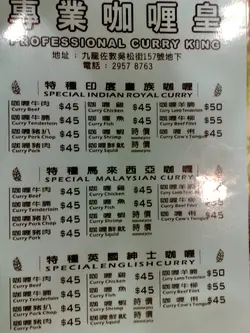 專業咖喱皇
PROFESSIONAL CURRY KING
地址：九龍佐敦吳松街157號地下
電話：2957 8763
特種印度皇族咖喱
SPECIAL INDIAN ROYAL CURRY
咖喱牛肉 $45 咖喱雞 $45 咖喱羊腩 $50
Curry Beef Curry Chicken
咖喱牛柳 $45 咖喱魚 $45 咖喱牛腩 $55
Curry Tenderloin Curry Fish
咖喱豬扒 $45 咖喱蝦 時價 咖喱牛脷 $45
Curry Pork Chop Curry Shrimp Curry Cow's Tongue
咖喱豬肉 $45 時價
Curry Pork Curry Squid
特種馬來西亞咖喱
SPECIAL MALAYSIAN CURRY
咖喱牛肉 $45 咖喱雞 $45 咖喱羊腩
Curry Beef Curry Chicken
咖喱牛柳 $45 咖喱魚 $45 咖喱牛腩
Curry Tenderloin Curry Fish
咖喱豬扒 $45 咖喱蝦 時價 咖喱牛脷 $45
Curry Pork Chop Curry Shrimp Curry Cow's Tongue
咖喱豬肉 $45 時價
Curry Pork Curry Squid
特種英國紳士咖喱
SPECIAL ENGLISH CURRY
咖喱牛肉 $45 咖喱雞 $45 咖喱羊腩 $50
Curry Beef Curry Chicken
咖喱牛柳 $45 咖喱魚 $45 咖喱牛腩 $55
Curry Tenderloin Curry Fish
咖喱豬扒 $45 咖喱蝦 時價 咖喱牛脷 $45
Curry Pork Chop Curry Shrimp Curry Cow's Tongue
咖喱豬肉 $45 時價
Curry Pork Curry Squid